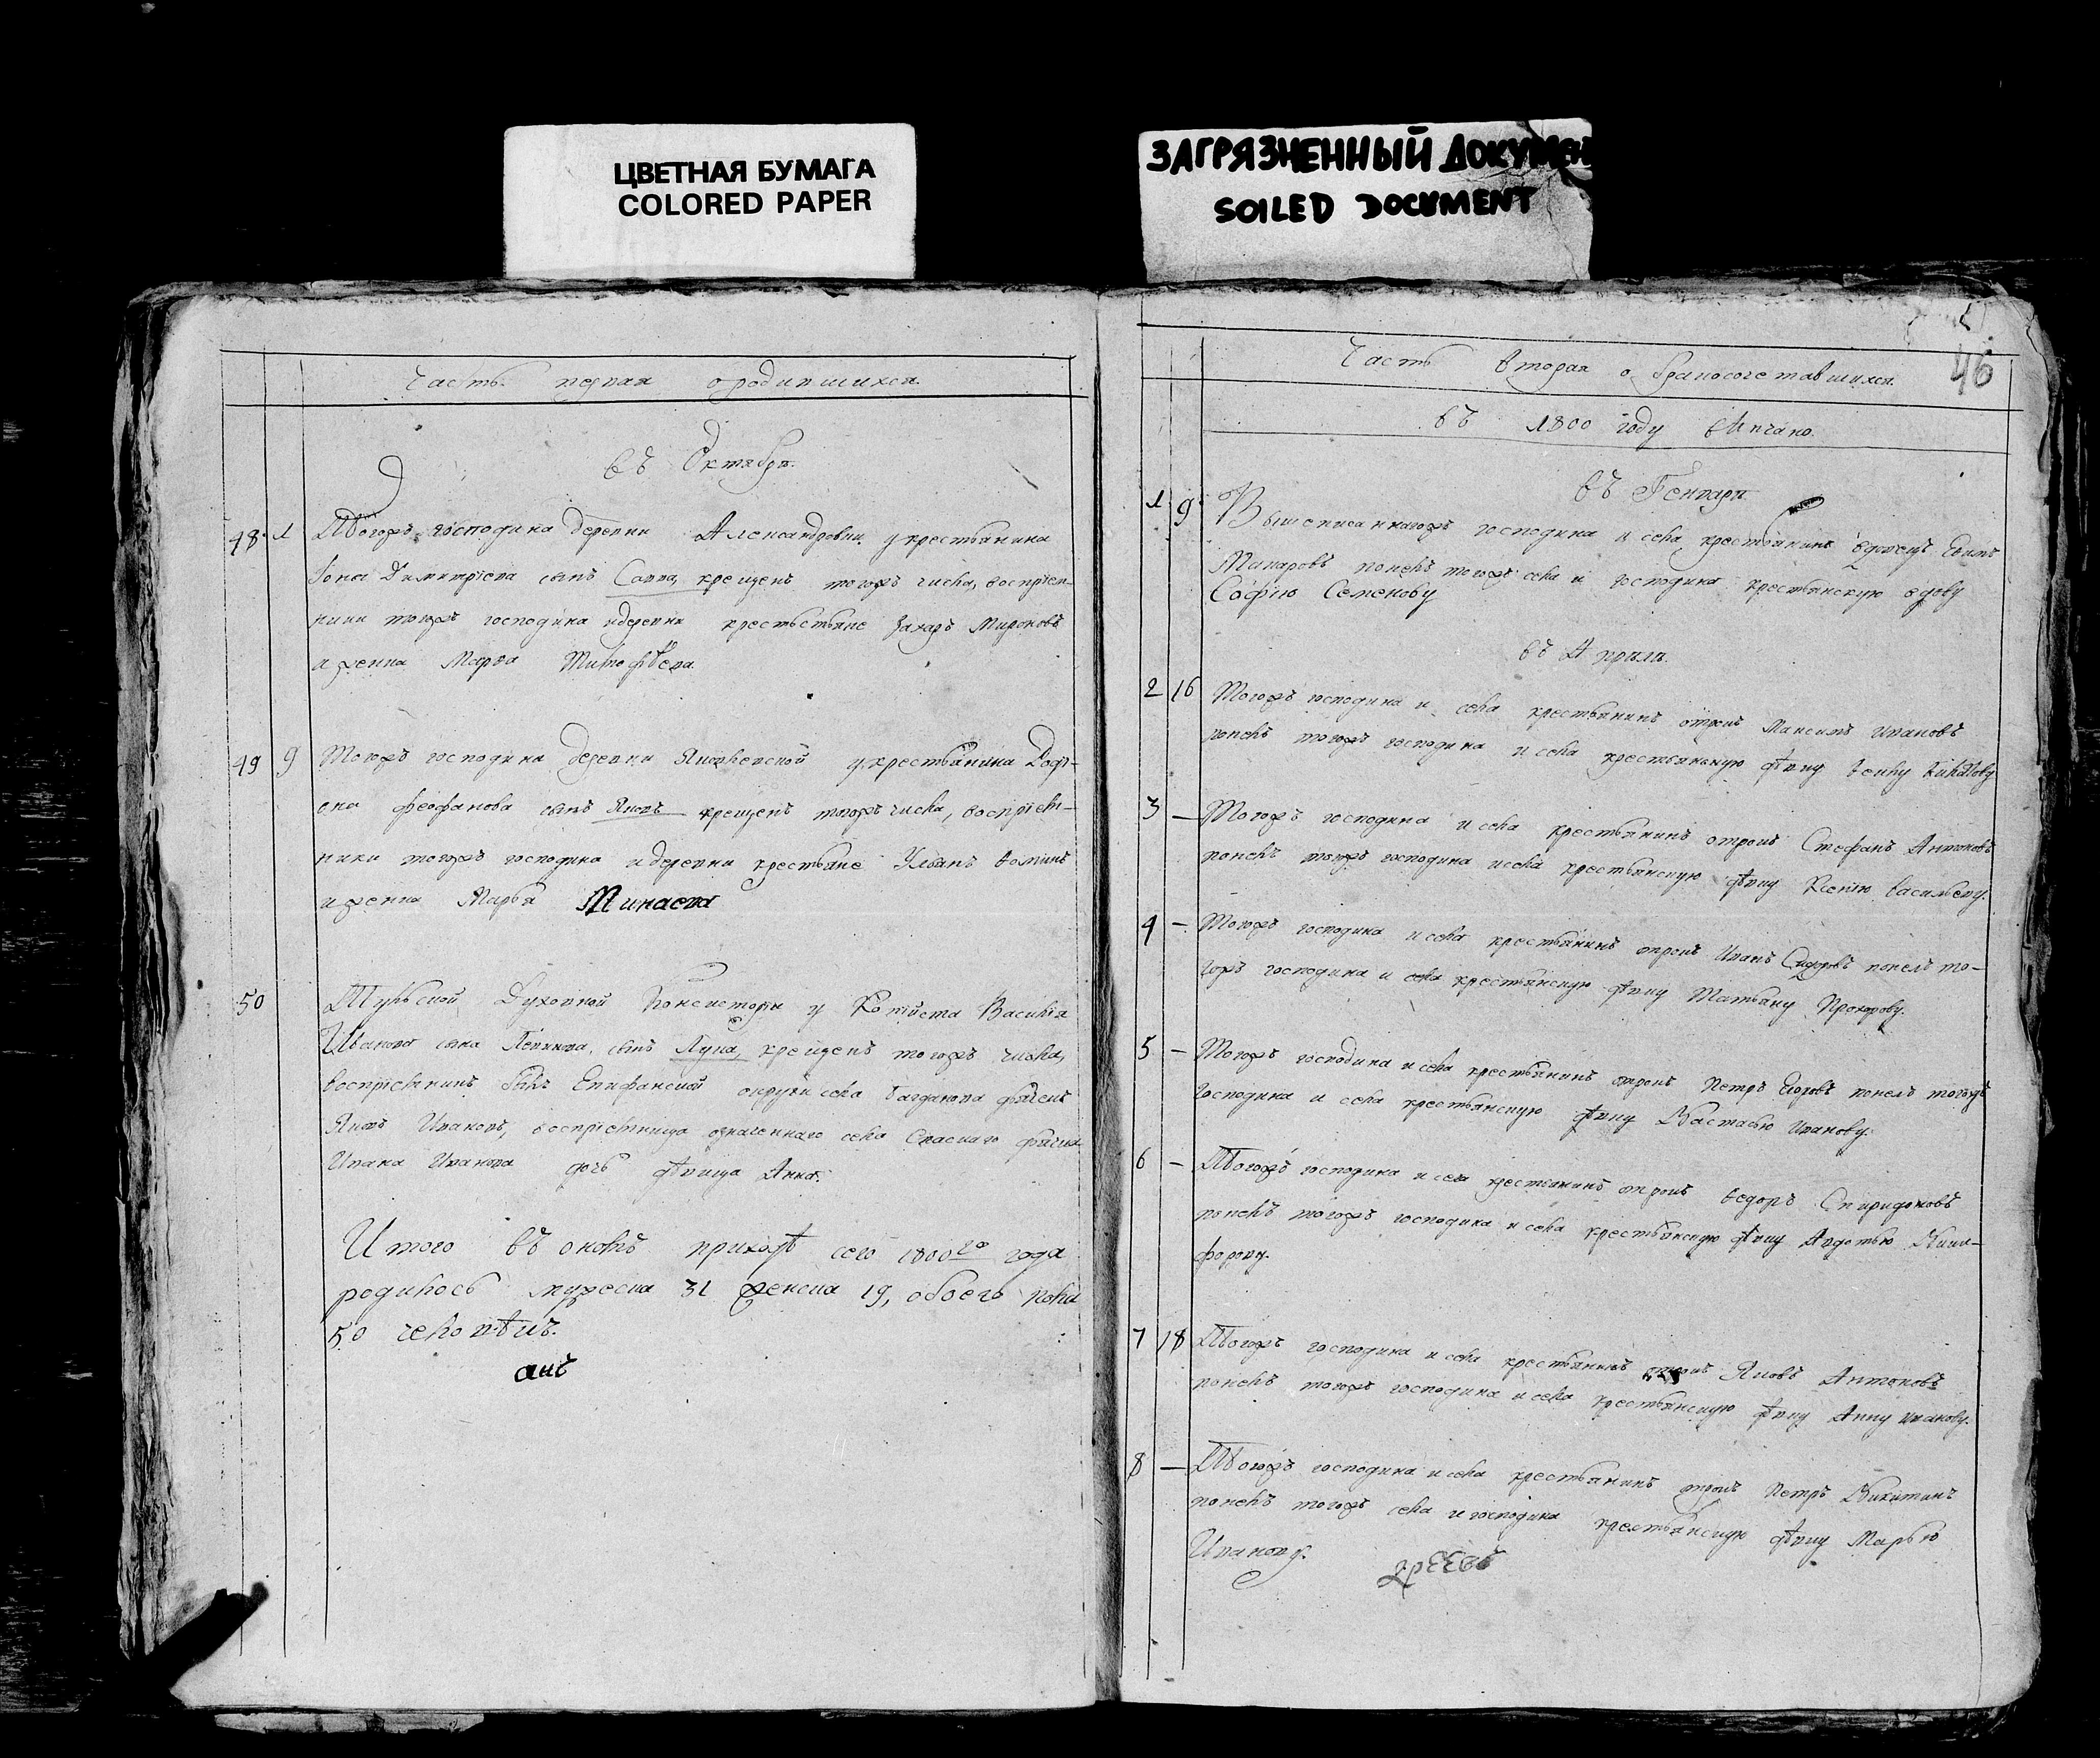 ЦВЕТНАЯ БУМАГА
COLORED PAPER
ЗАГРЯЗНЕННЫЙ ДОКУМЕН
SOILED DOCUMENT
Часть первая о родившихся.
въ Октябрѣ.
48 1 Тогожъ господина деревни Александровки у крестьянина
Іоны Димитріева сынъ Савва, крещенъ тогожъ числа, воспріем-
ники тогожъ господина и деревни крестьстьяне Захаръ Мироновъ
а женка Марѳа Тимофѣева.
49 9 Тогожъ господина деревни Яковлевской у крестьянина
Феофанова сынъ Яковъ крещенъ тогожъ числа, воспріем-
ники тогожъ господина и деревни крестьяне Ульянъ Ѳоминъ
и женка Марья Минаева
50 Тульской Духовной Консисторіи у Копіиста Василія
Иванова сына сынъ Лука, крещенъ тогожъ числа,
воспріемникъ былъ Епифанской округи села Багданова дьячекъ
Яковъ Ивановъ, воспріемница означеннаго села Спаскаго дьячка
Ивана Иванова дочь дѣвица Анна.
Итого въ ономъ приходѣ сего 1800го года
родилось мужеска 31 женска 19, обоего пола
50 человѣкъ.
46
Часть вторая о бракосочетавшихся.
въ 1800 году вѣнчано.
въ Генварѣ
1 9 Вышеписаннагожъ господина и села крестьянинъ вдовецъ Евимъ
Макаровъ понелъ тогожъ села и господина крестьянскую вдову
Софію Семенову
въ Апрѣлѣ.
2 16 Тогожъ господина и села крестьянинъ отрокъ Максимъ Ивановъ
понелъ тогожъ господина и села крестьянскую дѣвку
3 — Тогожъ господина и села крестьянинъ отрокъ Стефанъ Антоновъ
понелъ тогожъ господина и села крестьянскую дѣвку Ксенію Васильеву.
4 — Тогожъ господина и села крестьянинъ отрокъ Иванъ Сидоровъ понелъ то-
гожъ господина и села крестьянскую дѣвку Татьяну Прохорову.
5 — Тогожъ господина и села крестьянинъ отрокъ Петръ Егоровъ понелъ тогожъ
господина и села крестьянскую дѣвку Настасью Иванову.
6 — Тогожъ господина и села крестьянинъ отрокъ Ѳедоръ Спиридоновъ
понелъ тогожъ господина и села крестьянскую дѣвку Авдотью Ники-
форову.
7 18 Тогожъ господина и села крестьянинъ отрокъ Яковъ Антоновъ
понелъ тогожъ господина и села крестьянскую дѣвку Анну Иванову.
8 — Тогожъ господина и села крестьянинъ отрокъ Петръ Никитинъ
понелъ тогожъ села и господина крестьянскую дѣвку Марью
Иванову.